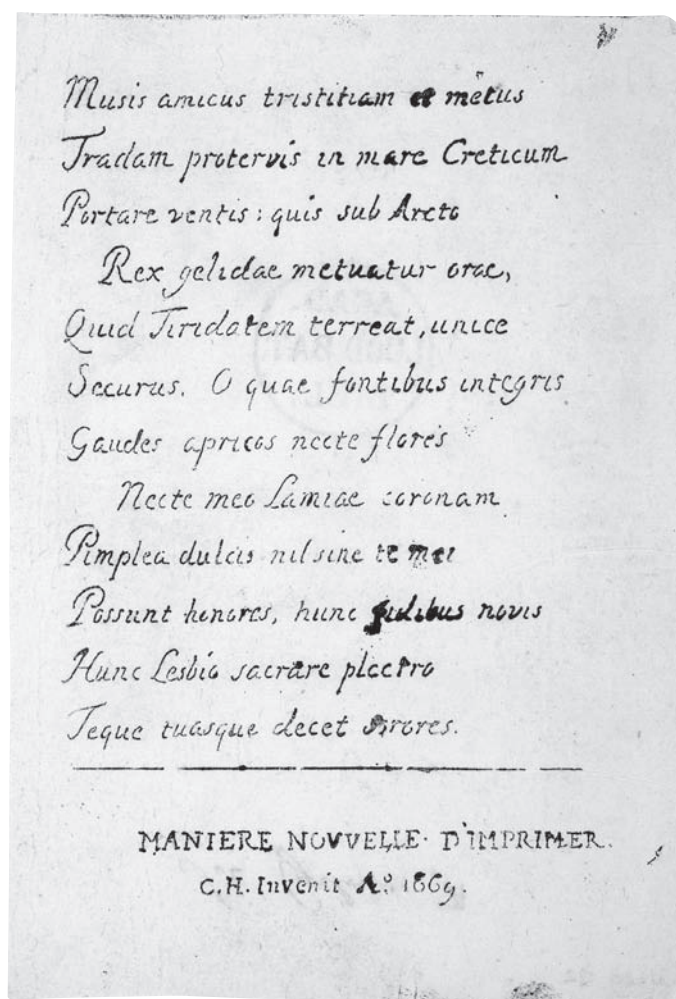 Musis amicus tristitiam et metus
Tradam protervis in mare Creticum
Portare ventis: quis sub Arcto
Rex gelidae metuatur orae,
Quid Tiridatem terreat, unice
Securus. O quae fontibus integris
Gaudes apricos necte flores
Necte meo Lamiae coronam
Pimplea dulcis nil sine te mei
Possunt honores, hunc fidibus novis
Hunc Lesbio sacrare plectro
Teque tuasque decet sorores.
MANIERE NOVVELLE D'IMPRIMER.
C.H. Invenit Aº 1669.